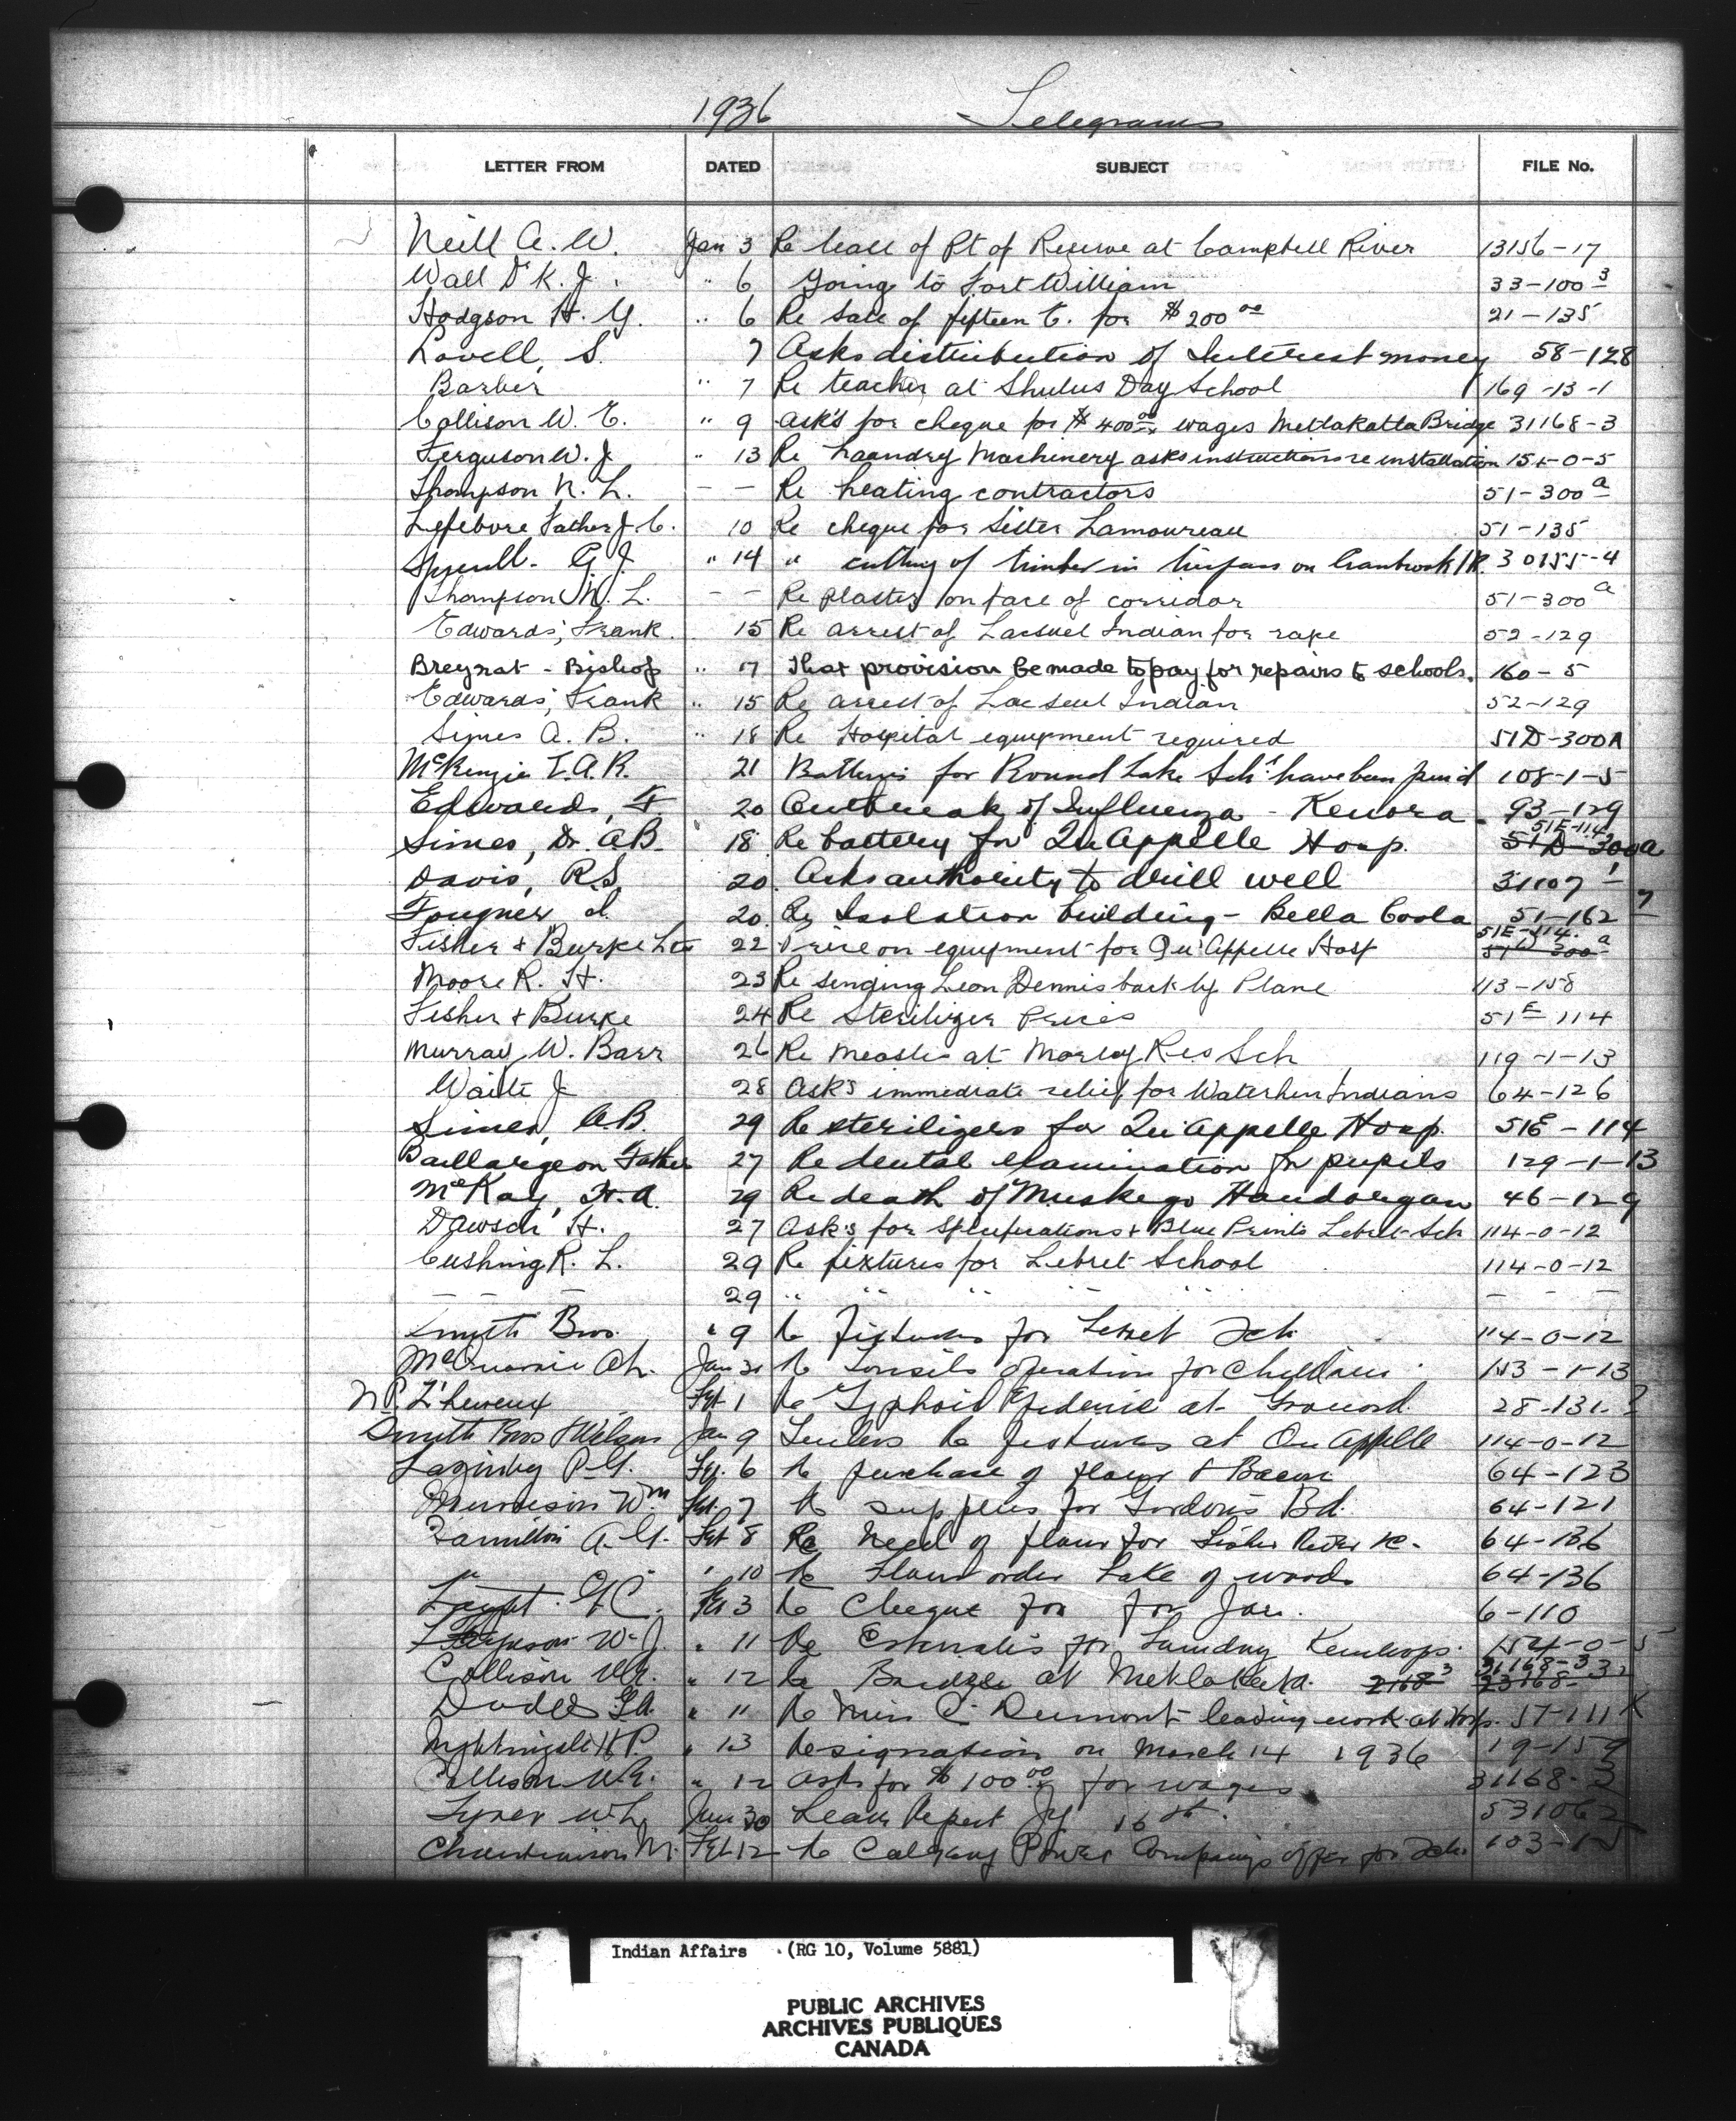 1936 Telegrams
LETTER FROM DATED SUBJECT FILE No.
Neill A. W. Jan 3 Re lease of Pt of Reserve at Campbell River 13156-17
Wall Dr K. J. " 6 Going to Fort William 33-100 3
Hodgson H. Y. " 6 Re Sale of fifteen C. for $200 00 21-135
Lovell, S. 7 Asks distribution of Interest money 58-128
Barber " 7 Re teacher at Shulus Day School 169-13-1
Collison W. E. " 9 Ask's for cheque for $400 00 wages Metlakatla Bridge 31168-3
Ferguson W. J. " 13 Re Laundry Machinery asks instructions re installation 154-0-5
Thompson N. L. - - Re heating contractors 51-300 a
Lefebvre Father J. C. 10 Re cheque for Sister Lamoureau 51-135
G. J. " 14 " cutting of timber in on Cranbrook I.R. 30155-4
Thompson N. L. - - Re plaster on face of corridor 51-300 a
Edwards, Frank. 15 Re arrest of Lacseul Indian for rape 52-129
Breynat - Bishop " 17 That provision be made to pay for repairs to schools. 160-5
Edwards, Frank " 15 Re arrest of Lac Seul Indian 52-129
Simes A. B. " 18 Re Hospital equipment required 51D-300A
McKenzie T. A. R. 21 Batteries for Round Lake Sch. have been paid 108-1-5
Edwards, F. 20 Outbreak of Influenza - Kenora. 93-129
Simes, Dr. A B. 18 Re battery for Qu'Appelle Hosp. 51E-114 51D-300a
Davis, R.S. 20 Asks authority to drill well 31107-1
Fougner I. 20 Re Isolation building - Bella Coola 51-162 7
Fisher & Burke Ltd 22 Price on equipment for Qu'Appelle Hosp 51E-114. 51D 300 a
Moore R. H. 23 Re sending Leon Dennis back by Plane 113-158
Fisher & Burke 24 Re Sterilizer Prices 51E 114
Murray W. Barr 26 Re Measles at Morley Res Sch 119-1-13
Waite J 28 Ask's immediate relief for Waterhen Indians 64-126
Simes, A.B. 29 Re sterilizers for Qu'Appelle Hosp. 51E-114
Baillargeon Father 27 Re dental examination for pupils 129-1-13
McKay, H. A. 29 Re death of Muskego Handorgan 46-129
Dawson H. 27 Ask's for Specifications & Blue Prints Lebret Sch 114-0-12
Cushing R. L. 29 Re fixtures for Lebret School 114-0-12
- - - 29 " " " " " - - -
Smyth Bros. " 9 Re Fixtures for Lebret Sch 114-0-12
McQuarrie Ch. Jan 31 Re Tonsils operation for Children 153-1-13
N.P. L'heureux Feb 1 Re Typhoid Epidemic at Grouard 28-131-2
Smyth Bros & Wilson Jan 9 Tenders Re fixtures at Qu'Appelle 114-0-12
Lazenby P.G. Fe. 6 Re purchase of flour & Bacon 64-123
Murrison Wm Feb. 7 Re supplies for Gordon's Bd. 64-121
Hamilton A. G. Feb 8 Re Need of flour for Fisher River R. 64-136
" " " 10 Re Flour order Lake of woods 64-136
G. C. Feb 3 Re Cheque for for Jan. 6-110
Ferguson W. J. " 11 Re Estimates for Laundry Kamloops. 154-0-5
Collison W.E. " 12 Re Bridge at Metlakatla. 2168 3 31168-3 23168-3
Dodds G.A. " 11 Re Miss C. Dumont leaving work at Hosp. 57-111 K
Nightingale H P. " 13 Resignation on March 14 1936 19-159
Collison W.E. " 12 Asks for $100 00 for wages 31168-3
Tyner W. L. Jan 30 Leak Report Jy 16th. 531062
M. Feb 12 Re Calgary Power Company's offer for Sch. 103-1-5
Indian Affairs (RG 10, Volume 5881)
PUBLIC ARCHIVES
ARCHIVES PUBLIQUES
CANADA